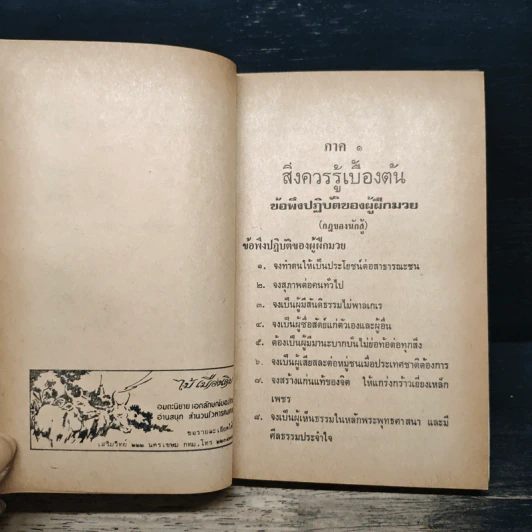 ไม้ เมืองเดิม
อมตะนิยาย เอกลักษณ์ของไทย
อ่านสนุก สำนวนโวหารคมคาย
เสริมวิทย์ ๒๒๒ นครเขษม กทม. โทร
ภาค ๑
สิ่งควรรู้เบื้องต้น
ข้อพึงปฏิบัติของผู้ฝึกมวย
(กฎของนักสู้)
ข้อพึงปฏิบัติของผู้ฝึกมวย
๑. จงทำตนให้เป็นประโยชน์ต่อสาธารณะชน
๒. จงสุภาพต่อคนทั่วไป
๓. จงเป็นผู้มีสันติธรรมไม่พาลเกเร
๔. จงเป็นผู้ซื่อสัตย์แก่ตัวเองและผู้อื่น
๕. ต้องเป็นผู้มีมานะบากบั่นไม่ย่อท้อต่อทุกสิ่ง
๖. จงเป็นผู้เสียสละต่อหมู่ชนเมื่อประเทศชาติต้องการ
๗ จงสร้างแก่นแท้ของจิต ให้แกร่งกร้าวเยี่ยงเหล็ก
เพชร
๘. จงเป็นผู้เห็นธรรมในหลักพระพุทธศาสนา และมี
ศีลธรรมประจำใจ